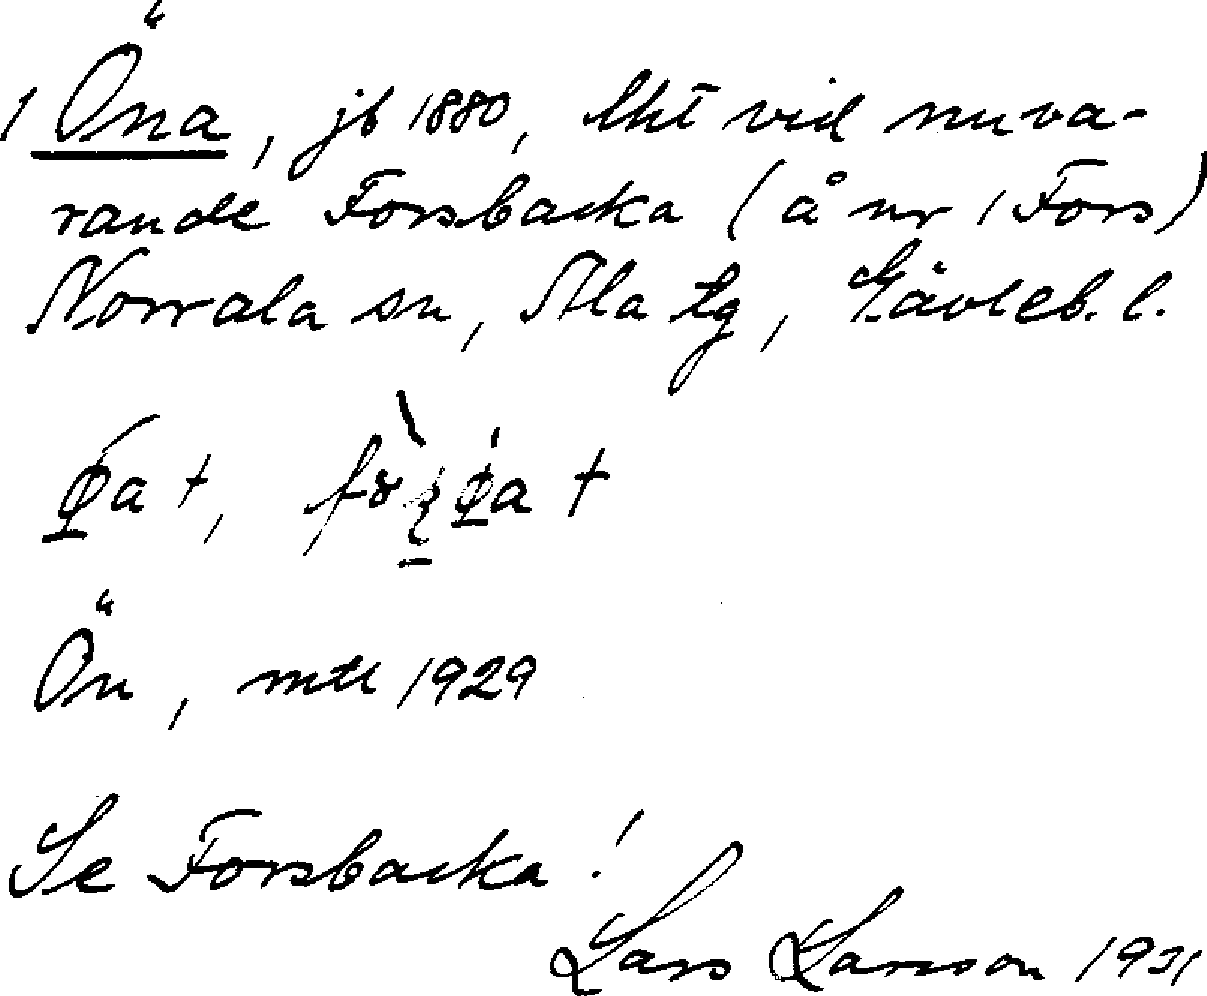 1 Öna, jb 1880, lht vid nuva-
rande Forsbacka (å nr 1 Fors)
Norrala sn, Ala tg, Gävleb. l.
a †, †
Ön, mtl 1929
Se Forsbacka!
Lars Larsson 1931